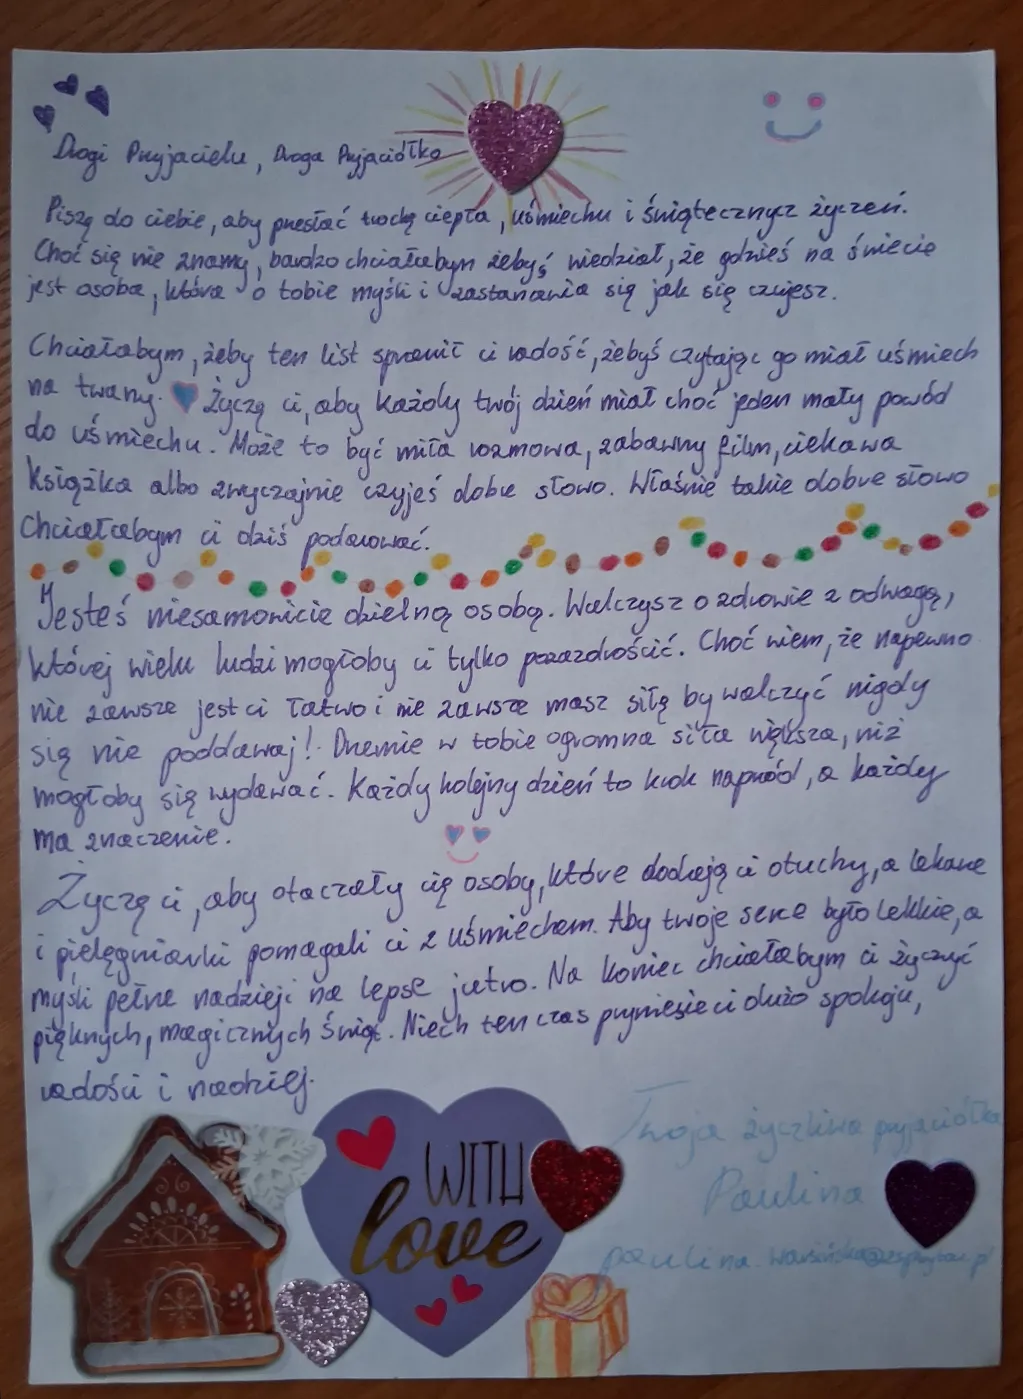 Drogi Przyjacielu, Droga Przyjaciółko
Piszę do ciebie, aby przesłać trochę ciepła, uśmiechu i świątecznycz życzeń.
Choć się nie znamy, bardzo chciałabym żebyś wiedział, że gdzieś na świecie
jest osoba, która o tobie myśli i zastanawia się jak się czujesz.
Chciałabym, żeby ten list sprawił ci radość, żebyś czytając go miał uśmiech
na twarzy. Życzę ci, aby każdy twój dzień miał choć jeden mały powód
do uśmiechu. Może to być miła rozmowa, zabawny film, ciekawa
książka albo zwyczajnie czyjeś dobre słowo. Właśnie takie dobre słowo
chciałabym ci dziś podarować.
Jesteś niesamowicie dzielną osobą. Walczysz o zdrowie z odwagą,
której wielu ludzi mogłoby ci tylko pozazdrościć. Choć wiem, że napewno
nie zawsze jest ci łatwo i nie zawsze masz siłę by walczyć nigdy
się nie poddawaj! Drzemie w tobie ogromna siła większa, niż
mogłoby się wydawać. Każdy kolejny dzień to krok naprzód, a każdy
ma znaczenie.
Życzę ci, aby otaczały cię osoby, które dodają ci otuchy, a lekarze
i pielęgniarki pomagali ci z uśmiechem. Aby twoje serce było lekkie, a
myśli pełne nadzieji na lepse jutro. Na koniec chciałabym ci życzyć
pięknych, magicznych świąt. Niech ten czas przyniesie ci dużo spokoju,
radości i nadziej.
WITH
love
Twoja życzliwa przyjaciółka
Paulina